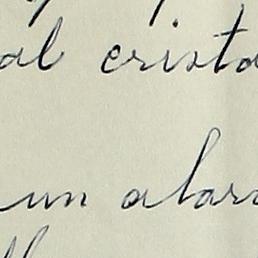 al crista
un alar